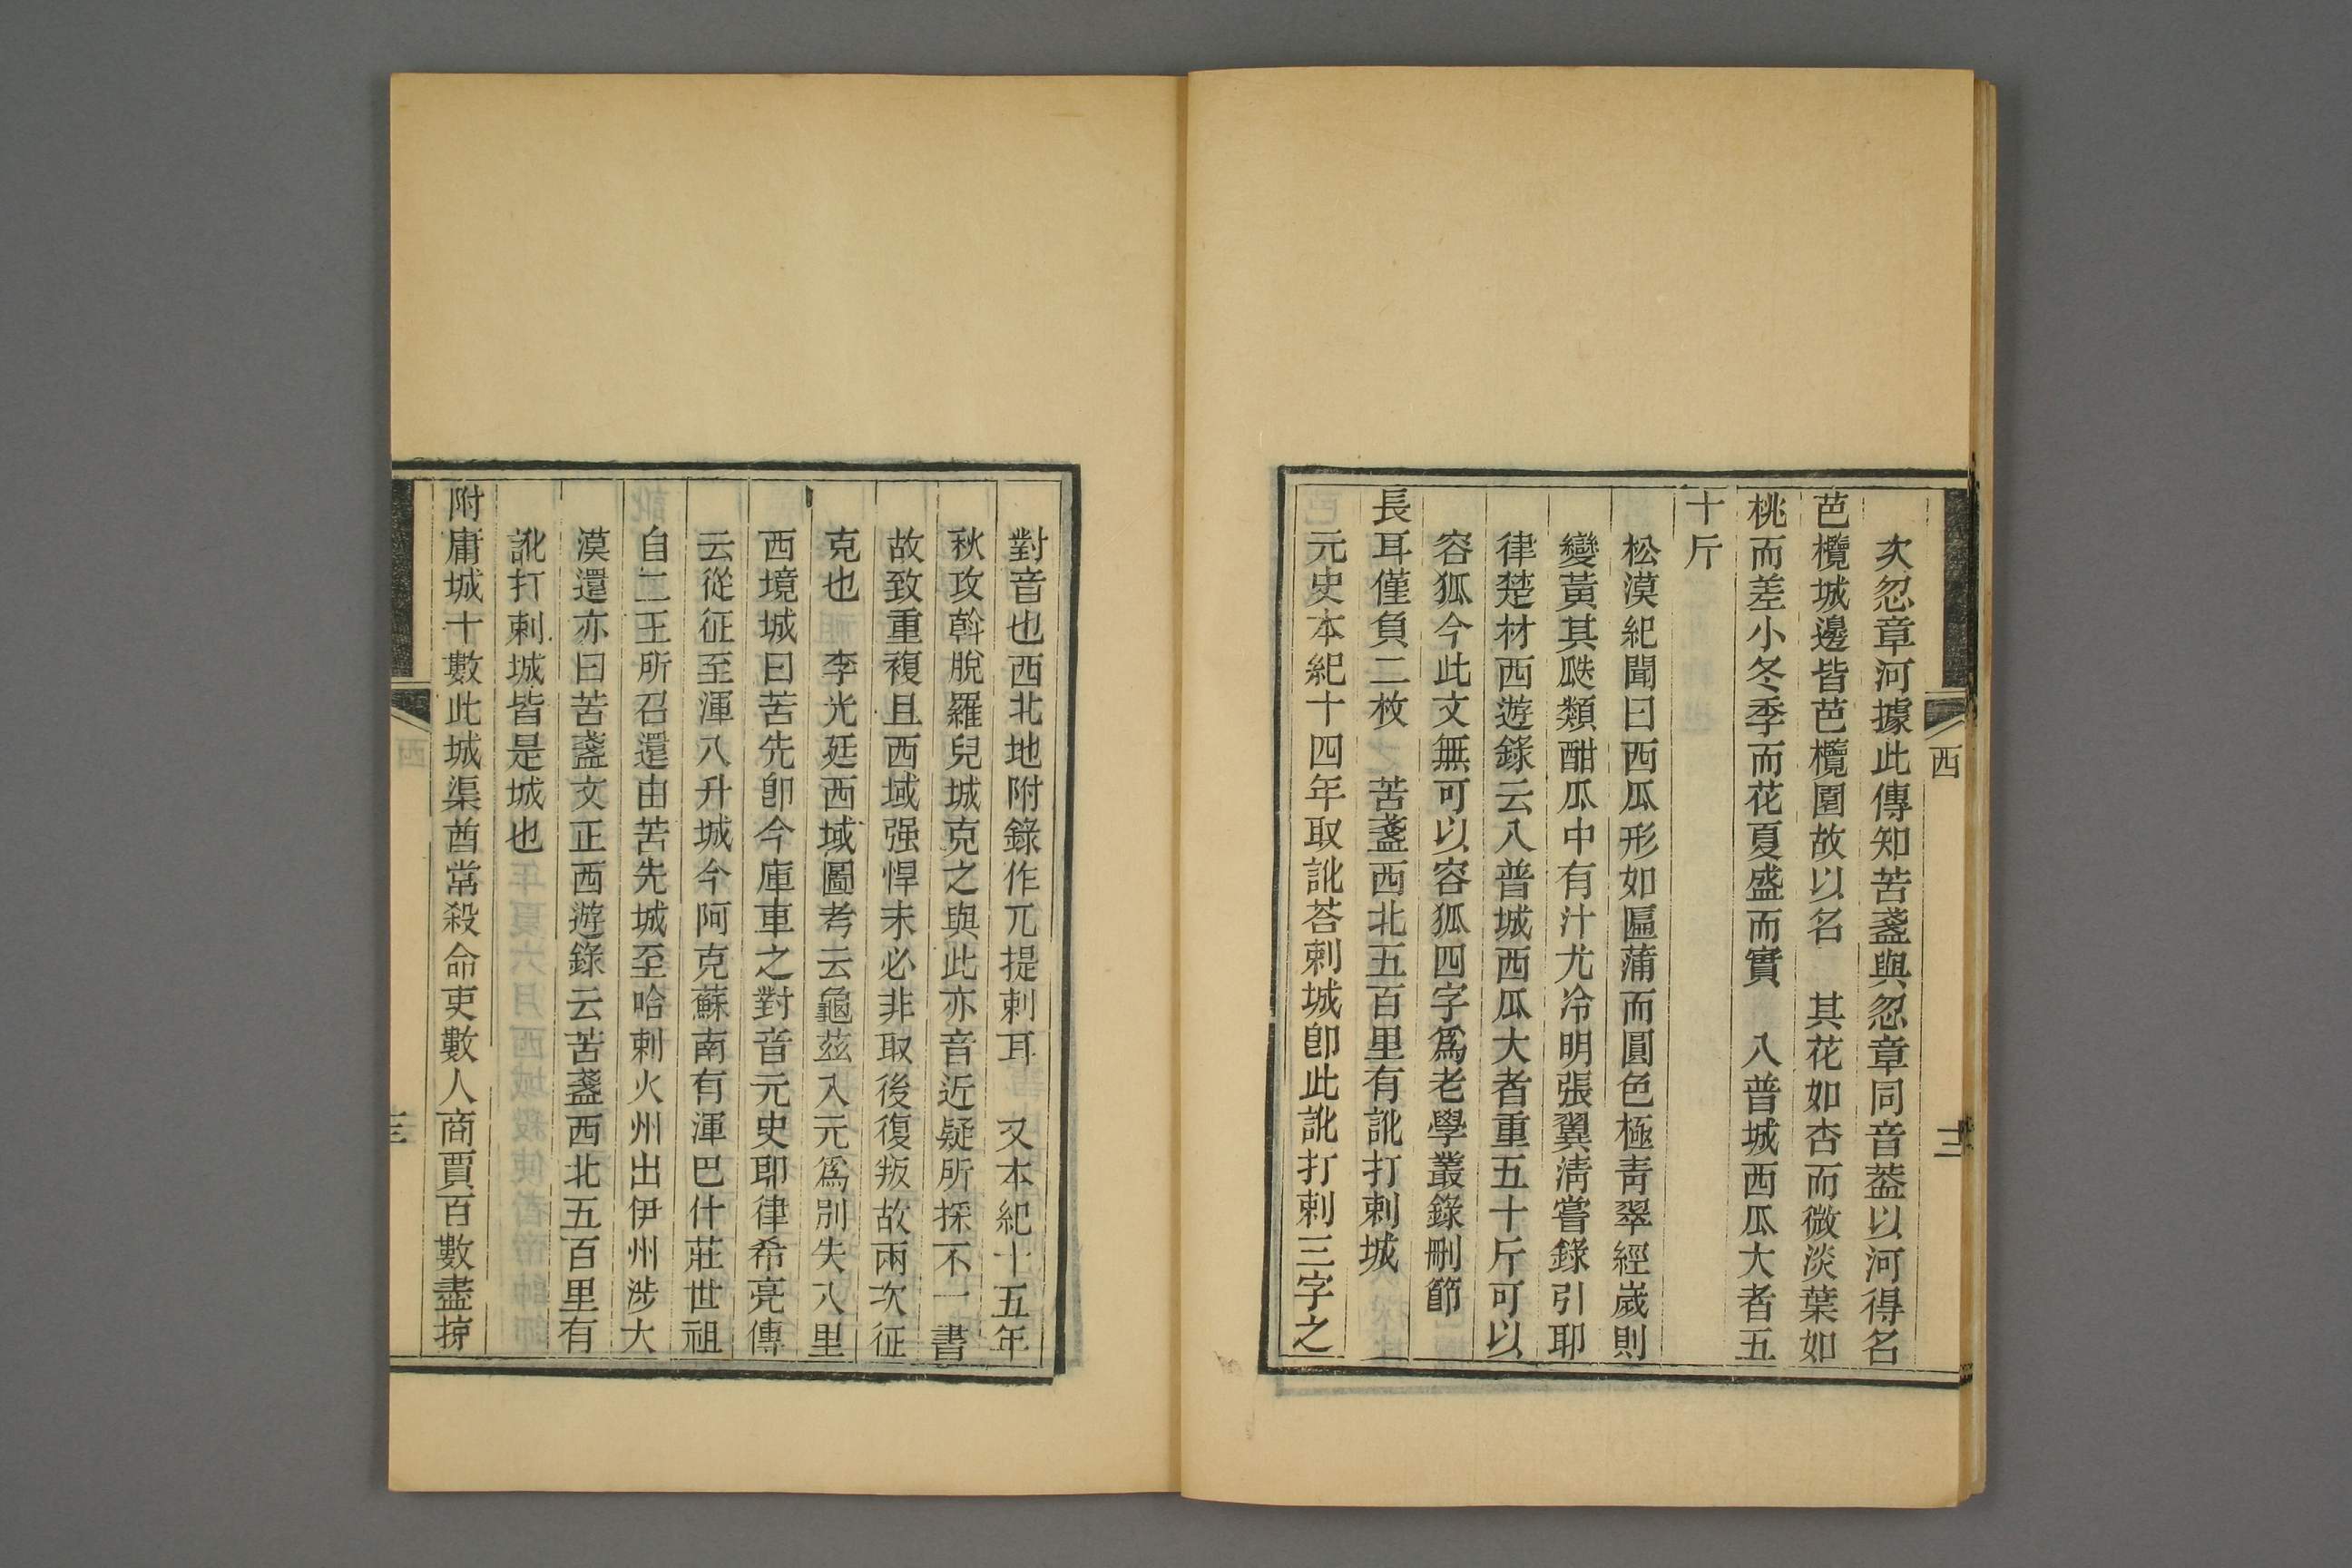 次忍章河據此傳知苦盞與忽章同音葢以河得名
芭欖城邊皆芭欖園故以名　其花如杏而微淡葉如
桃而差小冬季而花夏盛而實　八普城西瓜大者五
十斤
松漠紀聞曰西瓜形如匾蒲而圓色極靑翠經歲則
變黃其瓞類酣瓜中有汁尤冷明張翼淸嘗錄引耶
律楚材西遊錄云八普城西瓜大者重五十斤可以
容狐今此文無可以容狐四字爲老學叢錄刪節
長耳僅負二枚　苦盞西北五百里有訛打剌城
元史本紀十四年取訛荅剌城卽此訛打剌三字之
西
三
對音也西北地附錄作兀提剌耳　又本紀十五年
秋攻斡脫羅兒城克之與此亦音近疑所採不一書
故致重複且西域强悍未必非取後復叛故兩次征
克也　李光廷西域圖考云龜茲入元爲別失八里
西境城曰苦先卽今庫車之對音元史耶律希亮傳
云從征至渾八升城今阿克蘇南有渾巴什莊世祖
自二王所召還由苦先城至哈剌火州出伊州涉大
漠還亦曰苦盞文正西遊錄云苦盞西北五百里有
訛打剌城皆是城也
附庸城十數此城渠酋常殺命吏數人商賈百數盡掠